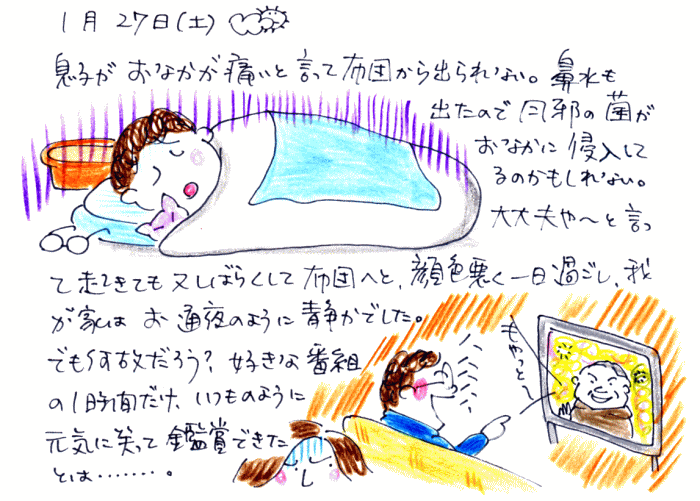 1月 27日(土)
息子が おなかが痛いと言って布団から出られない。鼻水も
出たので風邪の菌が
おなかに侵入して
るのかもしれない。
大丈夫や〜と言っ
て起きても又しばらくして布団へと、顔色悪く一日過ごし、我
が家は お通夜のように静かでした。
でも何故だろう?好きな番組
の1時間だけ、いつものように
元気に笑って鑑賞できた
とは・・・・・・・。
もやっと〜